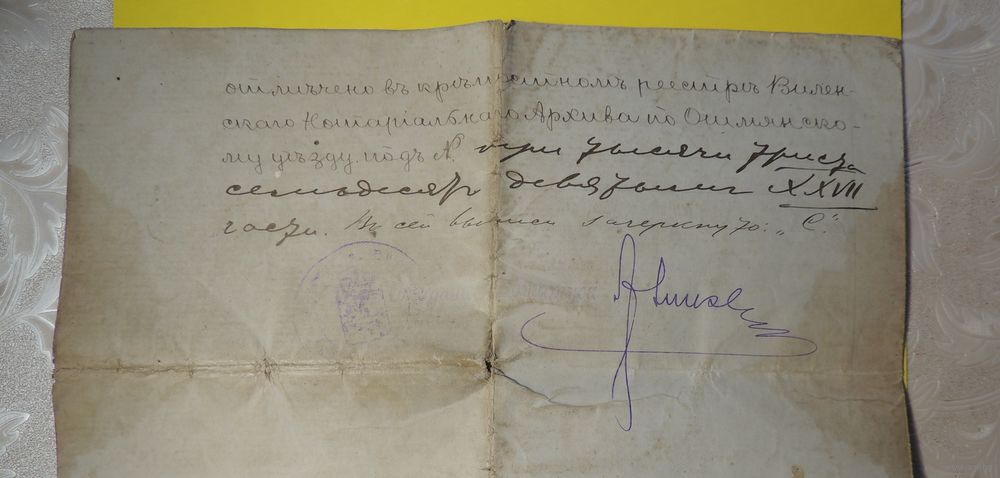 отмѣчено въ крѣпостномъ реестрѣ Вилен-
скаго Нотаріальнаго Архива по Ошмянско-
му уѣзду подъ №. три тысячи триста
семьдесятъ девятымъ XXVII
части. Въ сей выписи зачеркнуто: „С."